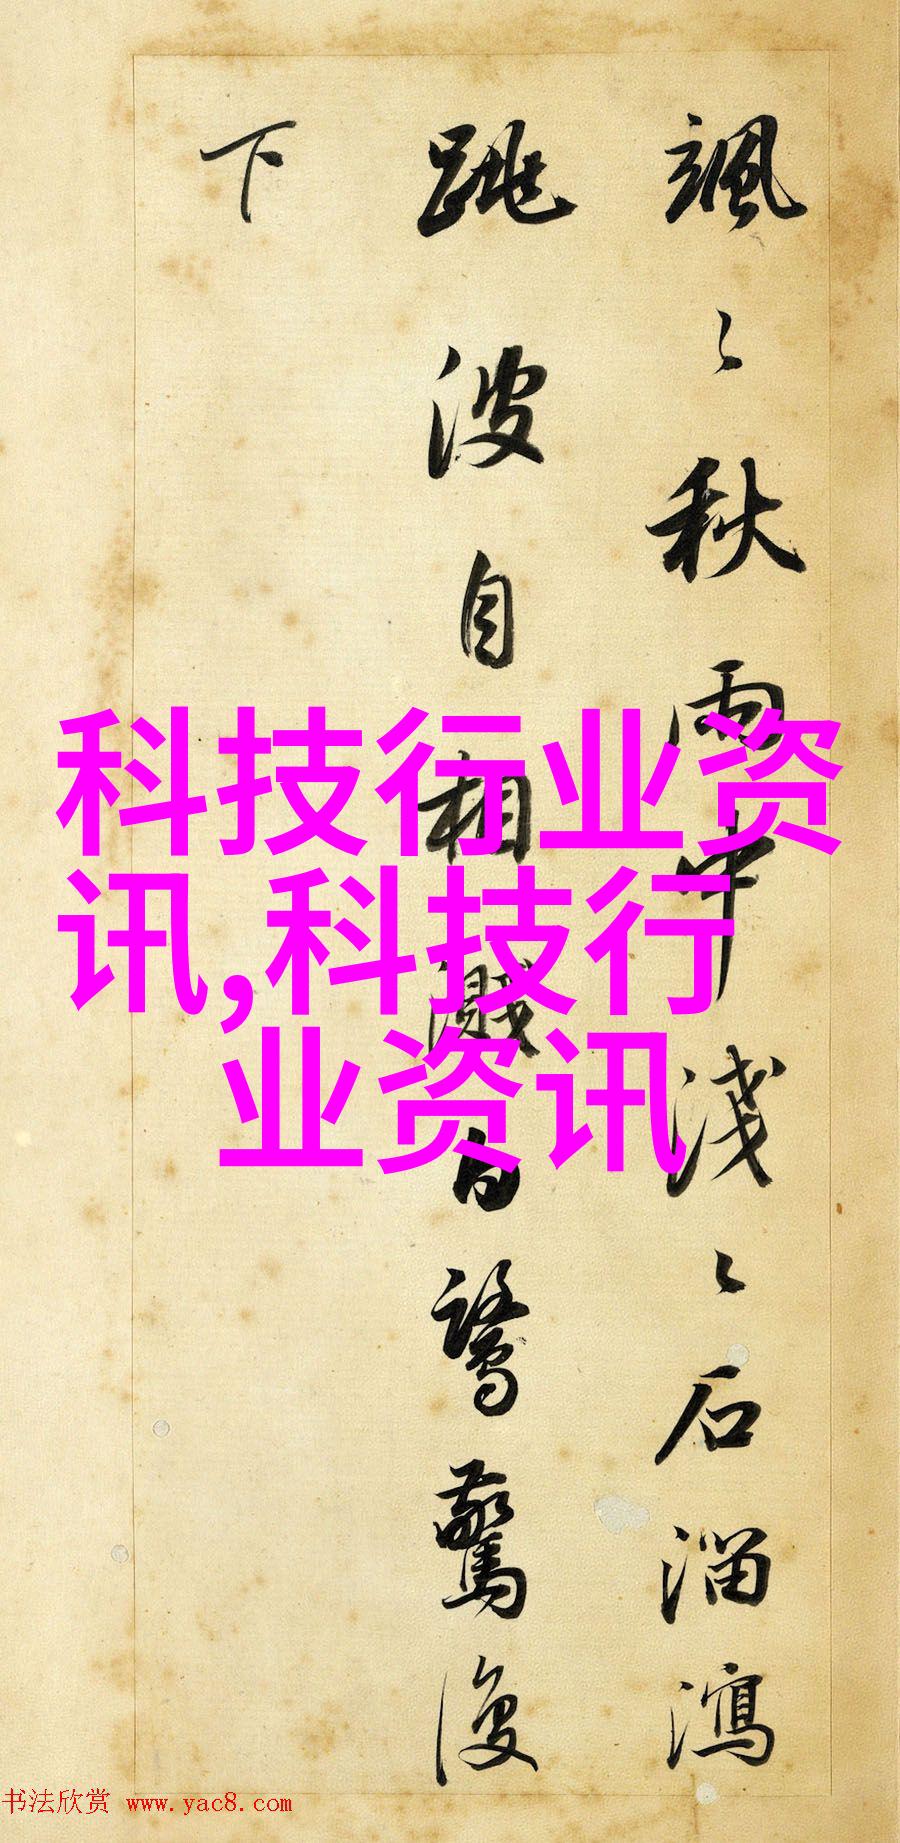 颯〻秋雨中淺〻石溜瀉
跳波自相濺白鷺驚復
下
科技行业资
讯,科技行
业资讯
书法欣赏 www.yac8.com